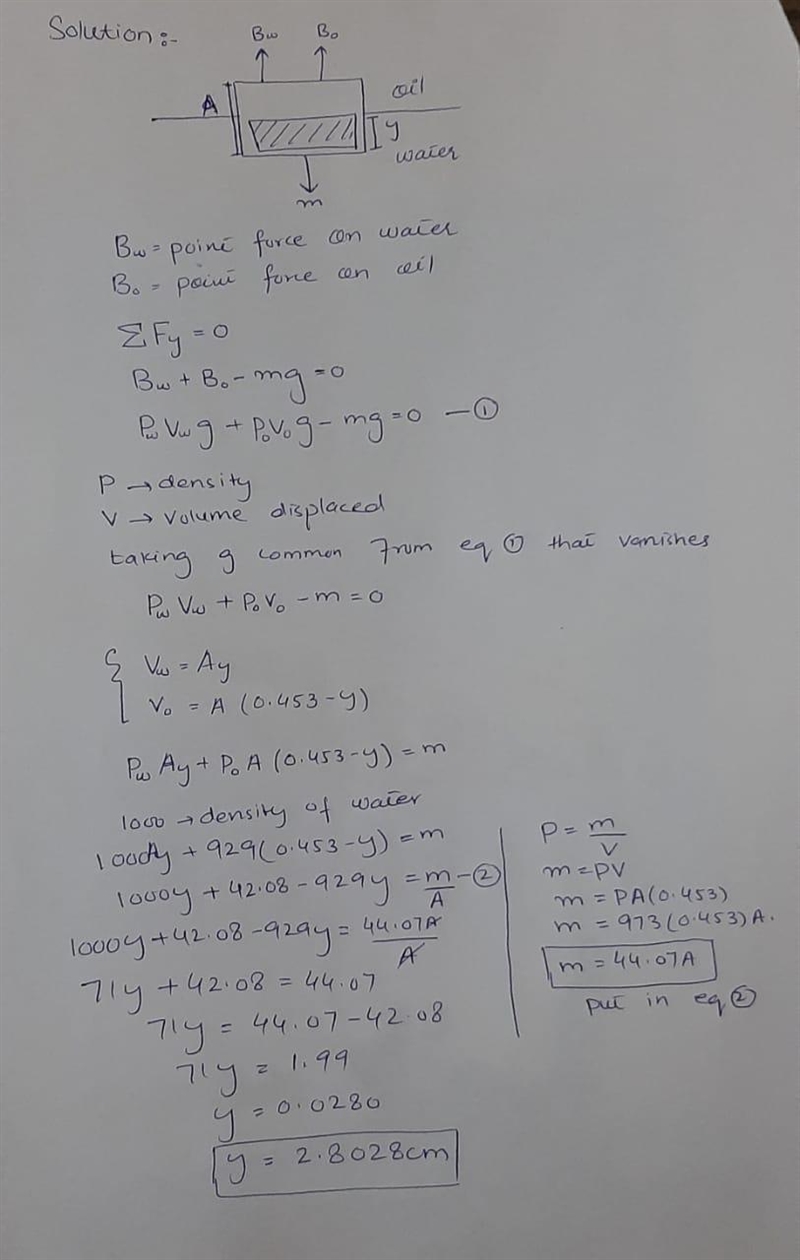 Solution :-
Bw Bo
A
oil
y
water
m
Bw = point force on water
Bo = point force on oil
ΣFy = 0
Bw + Bo - mg = 0
Pw Vw g + PoVog - mg = 0 — ①
P → density
V → Volume displaced
taking g common from eq ① that vanishes
Pw Vw + PoVo - m = 0
{ Vw = Ay
Vo = A (0.453-y)
Pw Ay + Po A (0.453-y) = m
1000 → density of water
1000Ay + 929(0.453-y) = m
1000y + 42.08 - 929y = m/A — ②
1000y + 42.08 - 929y = 44.07A/A
71y + 42.08 = 44.07
71y = 44.07 - 42.08
71y = 1.99
y = 0.0280
y = 2.8028cm
P = m/V
m = PV
m = PA(0.453)
m = 973(0.453)A.
m = 44.07A
put in eq ②